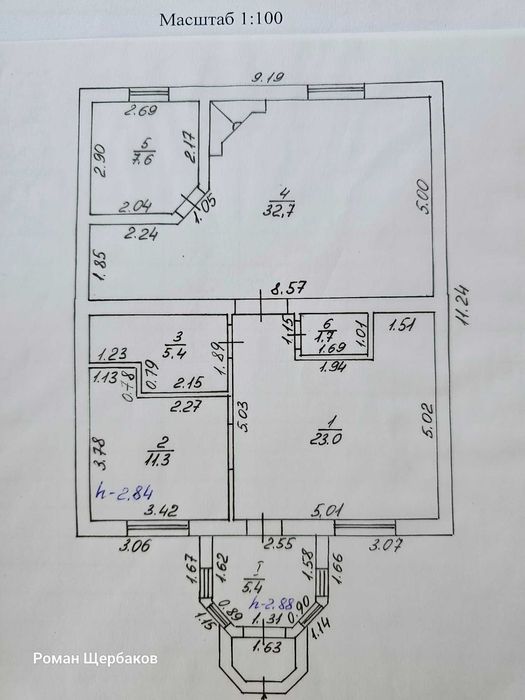 Масштаб 1:100
9.19
2.69
2.90
5
7.6
2.17
4
32,7
5.00
2.04
1.05
2.24
1.85
8.57
11.24
3
5.4
1.89
1.15
6
1.7
1.01
1.51
1.69
1.94
1.23
1.13
0.78
0.79
2.15
2.27
5.03
1
23.0
5.02
3.78
2
11.3
h-2.84
3.42
5.01
3.06
2.55
3.07
1.67
1.62
I
5.4
1.58
1.66
h-2.88
0.89
0.90
1.15
1.31
1.14
1.63
Роман Щербаков